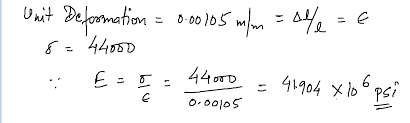 Unit Deformation = 0.00105 m/m = Δl/l = ϵ
σ = 44000
∵ E = σ/ϵ = 44000/0.00105 = 41904 × 10^6 psi